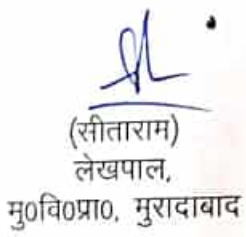 (सीताराम)
लेखपाल,
मु0वि0प्रा0, मुरादाबाद